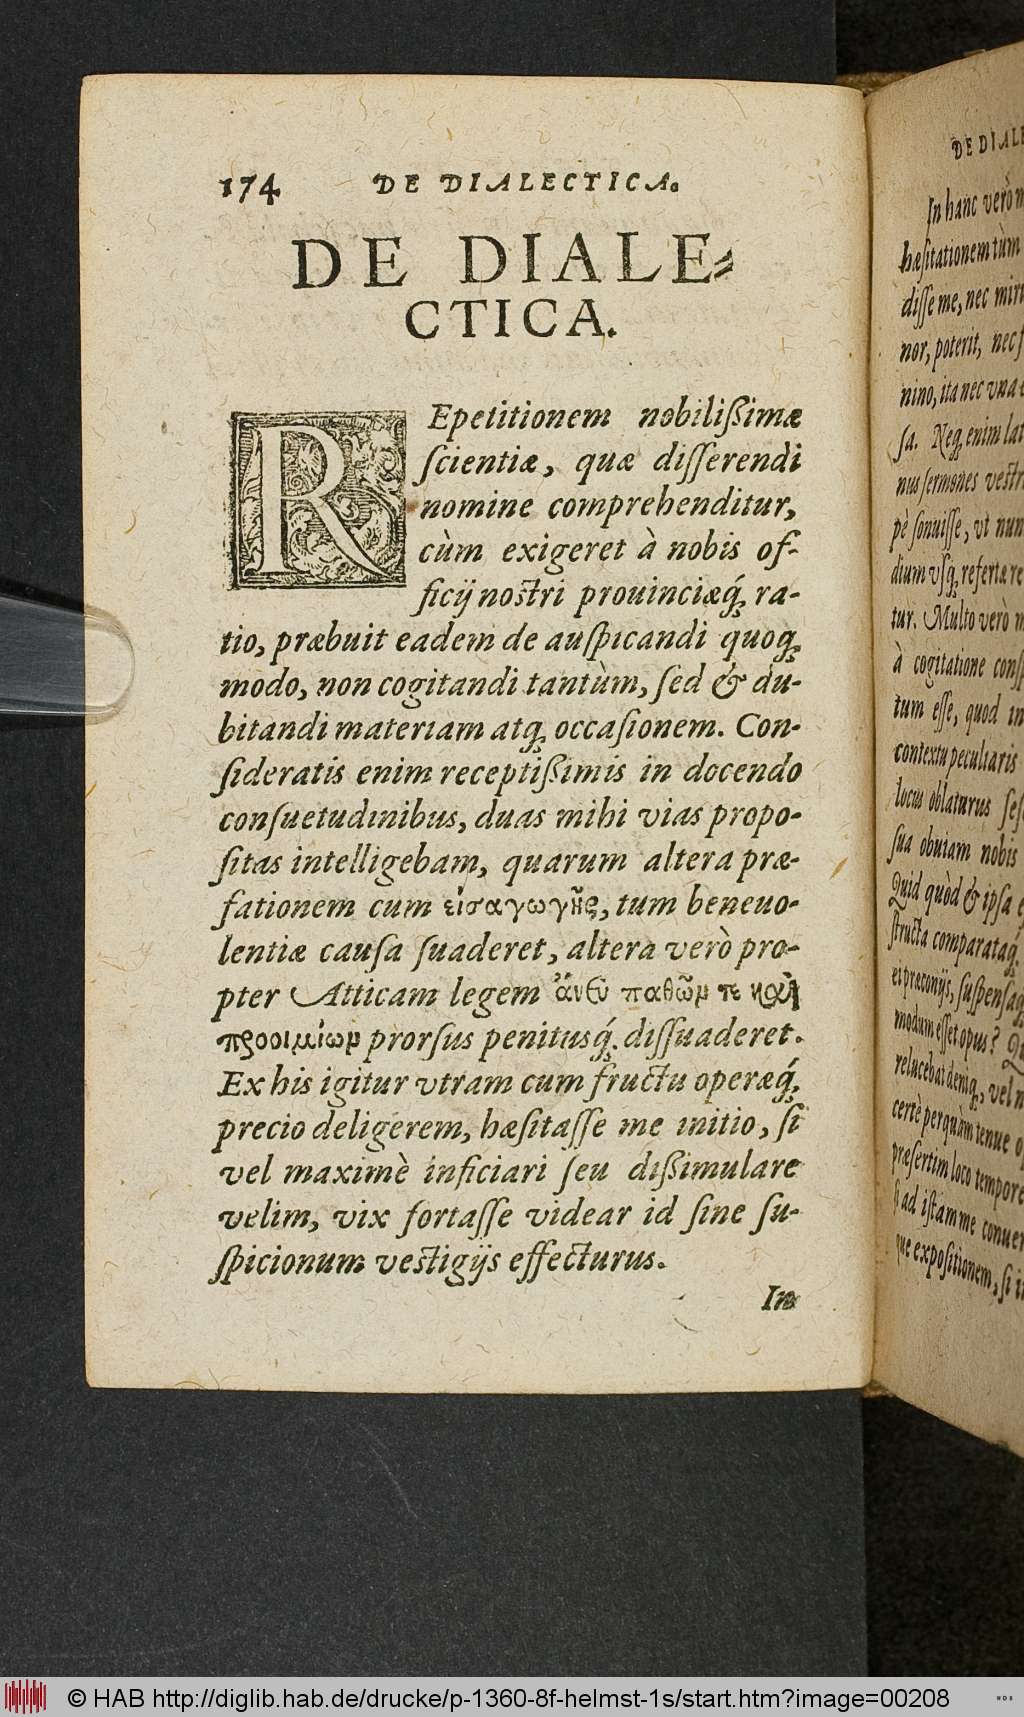 174 DE DIALECTICA.
DE DIALE-
CTICA.
REpetitionem nobilißimæ
ſcientiæ, quæ diſſerendi
nomine comprehenditur,
cùm exigeret à nobis of-
ficij noſtri prouinciæq́; ra-
tio, præbuit eadem de auſpicandi quoq;
modo, non cogitandi tantùm, ſed & du-
bitandi materiam atq; occaſionem. Con-
ſideratis enim receptißimis in docendo
conſuetudinibus, duas mihi vias propo-
ſitas intelligebam, quarum altera præ-
fationem cum εἰσαγωγῆς, tum beneuo-
lentiæ cauſa ſuaderet, altera verò pro-
pter Atticam legem ἄνευ παθῶν τε καὶ
προοιμίων prorſus penitusq́; diſſuaderet.
Ex his igitur vtram cum fructu operæq́;
precio deligerem, hæſitaſſe me initio, ſi
vel maximè inficiari ſeu dißimulare
velim, vix fortaſſe videar id ſine ſu-
ſpicionum veſtigijs effecturus.
In
DE DIALE
In hanc verò
hæſitationem tùm
diſſe me, nec
nor, poterit, nec
nino, ita nec vna
ſa. Neq; enim
nus ſermones
pè ſonuiſſe, vt
dium vſq;
tur. Multo verò
à cogitatione
tum eſſe, quod in
contextu peculiaris
locus oblaturus
ſua obuiam nobis
Quid quòd & ipſa
ſtructa comparataq́;
ei præconijs,
modum eſſet opus?
relucebat deniq;, vel
certè perquàm tenue
præſertim loco
ſi ad iſtam me
que expoſitionem, ſi
© HAB http://diglib.hab.de/drucke/p-1360-8f-helmst-1s/start.htm?image=00208